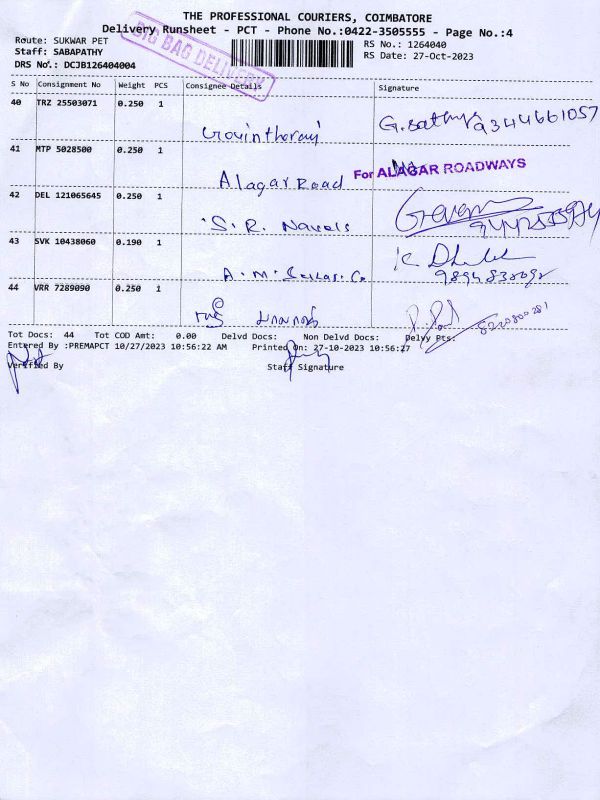 THE PROFESSIONAL COURIERS, COIMBATORE
Delivery Runsheet - PCT - Phone No.:0422-3505555 - Page No.:4
BIG BAG DELIVERY
Route: SUKWAR PET
Staff: SABAPATHY
DRS No.: DCJB126404004
RS No.: 1264040
RS Date: 27-Oct-2023
S No Consignment No Weight PCS Consignee Details Signature
40 TRZ 25503071 0.250 1
G.Sathya 9344661057
41 MTP 5028500 0.250 1
Alagar Road For ALAGAR ROADWAYS
42 DEL 121065645 0.250 1
S. R. Navels
43 SVK 10438060 0.190 1
A. M.
44 VRR 7289090 0.250 1
Tot Docs: 44 Tot COD Amt: 0.00 Delvd Docs: Non Delvd Docs: Delvy Pts:
Entered By :PREMAPCT 10/27/2023 10:56:22 AM Printed On: 27-10-2023 10:56:27
Verified By Staff Signature